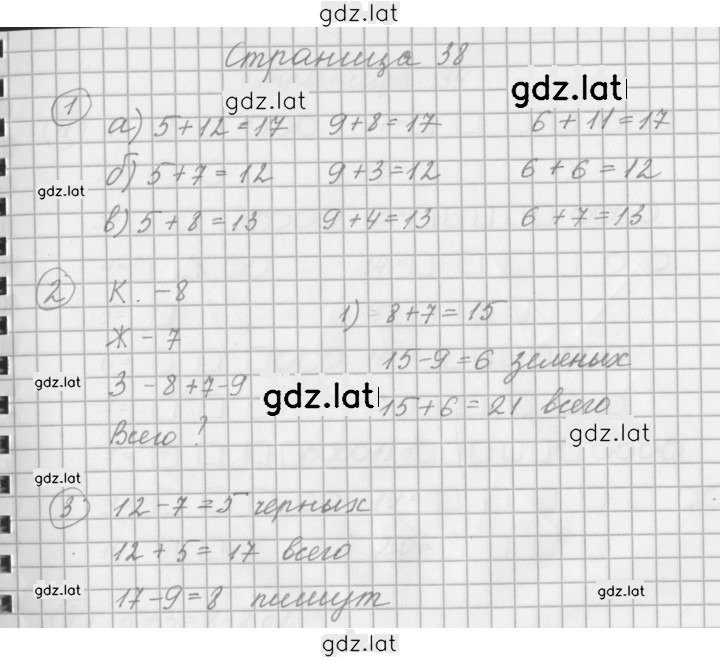 gdz.lat
Страница 38
gdz.lat gdz.lat
1 а) 5+12=17 9+8=17 6+11=17
б) 5+7=12 9+3=12 6+6=12
gdz.lat
в) 5+8=13 9+4=13 6+7=13
2 К. -8
1) 8+7=15
Ж - 7
15-9=6 зеленых
gdz.lat
З - 8+7-9
gdz.lat
15+6=21 всего
Всего ?
gdz.lat
gdz.lat
3 12-7=5 черных
12+5=17 всего
gdz.lat gdz.lat
17-9=8 пишут
gdz.lat